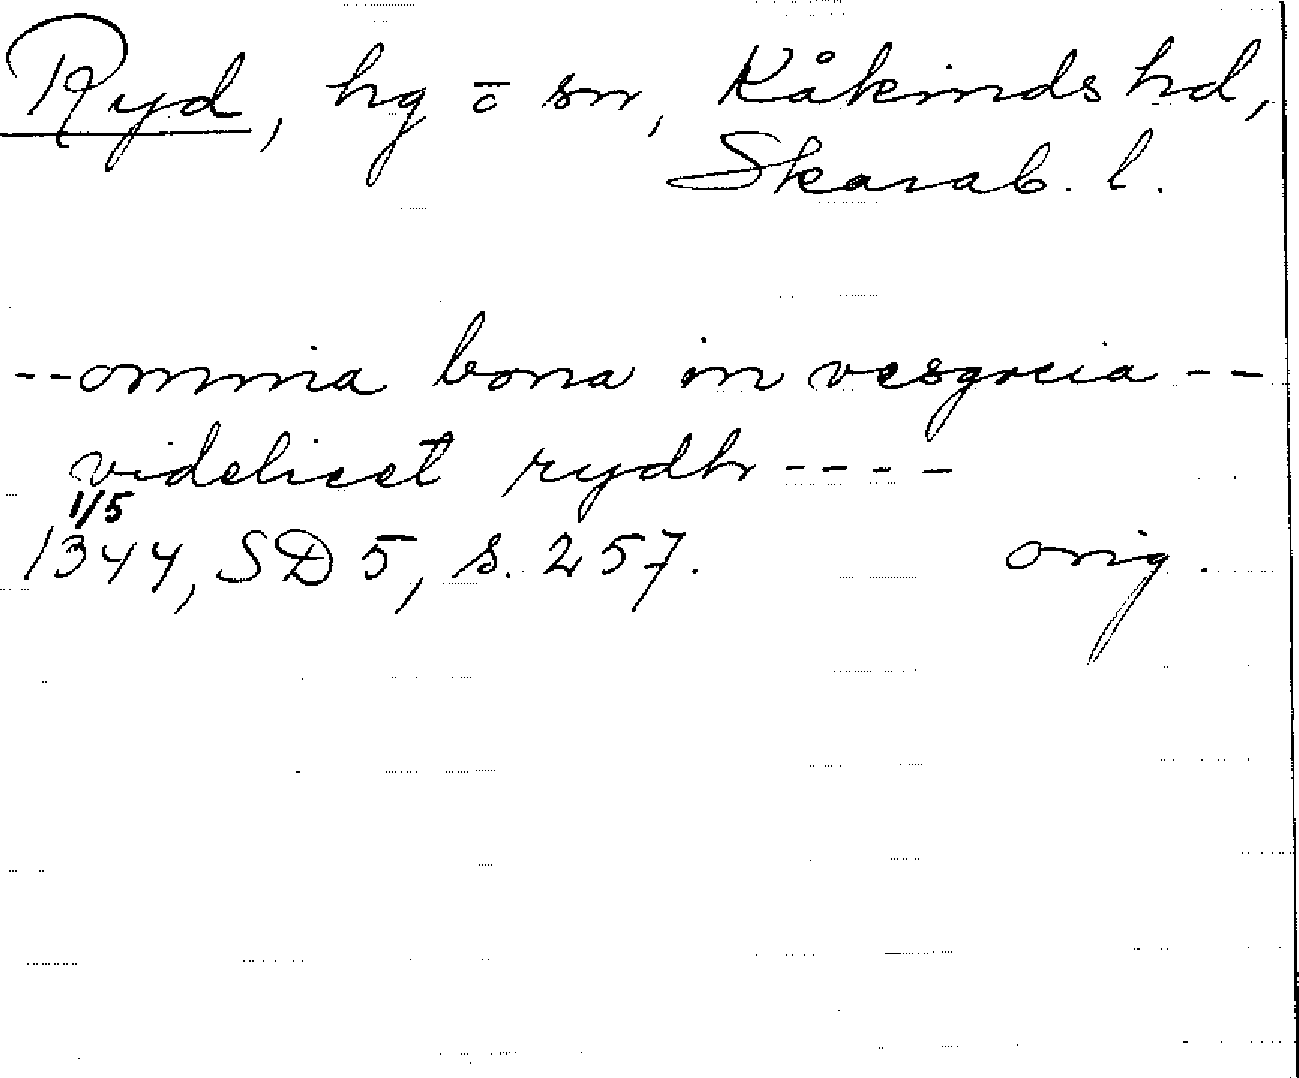 Ryd, hg o sn, Kåkinds hd,
Skarab. l.
--omnia bona in vesgocia--
videlicet rydh----
1/5
1344, SD 5, s. 257. orig.